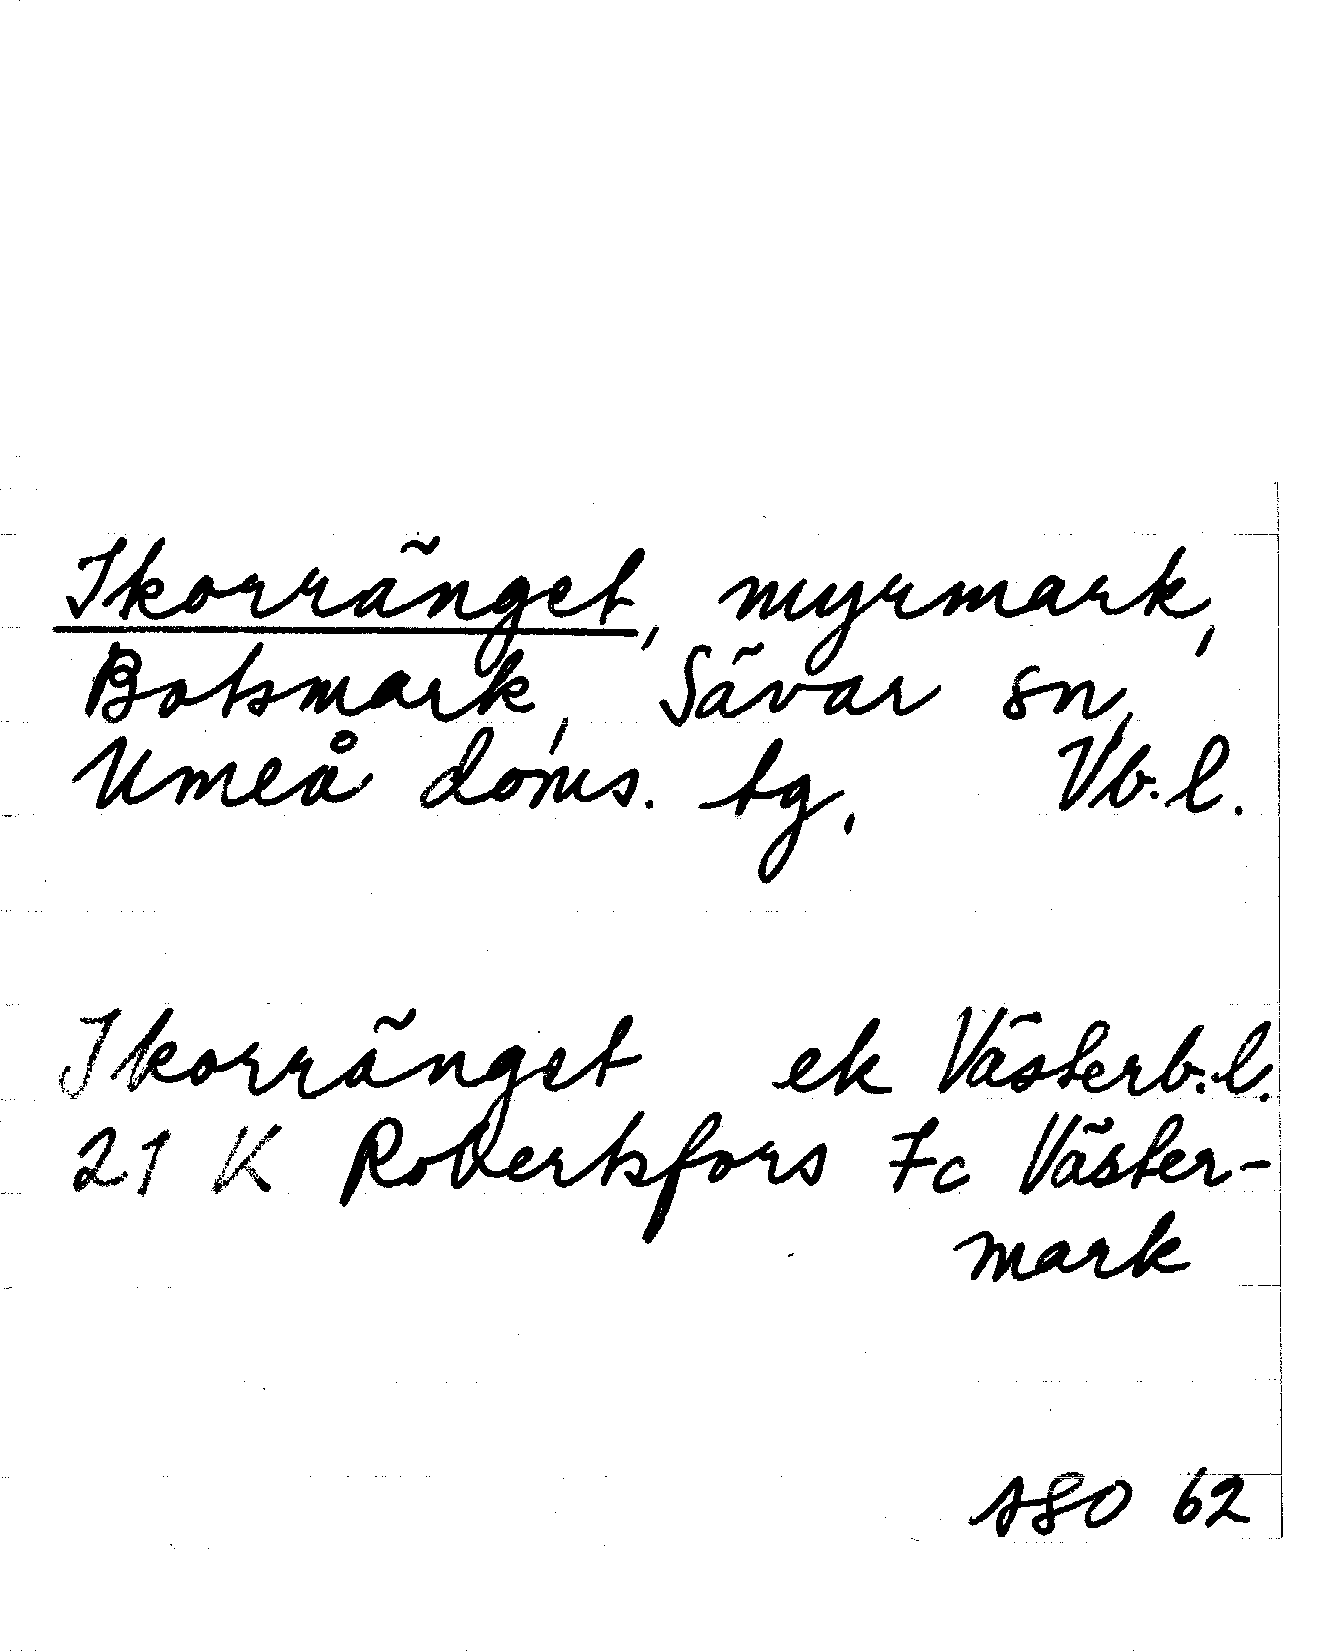 Ikorränget, myrmark,
Botsmark, Sävar sn,
Umeå doms. tg, Vb. l.
Ikorränget ek Västerb. l.
21 K Robertsfors 7c Väster-
mark
ASO 62